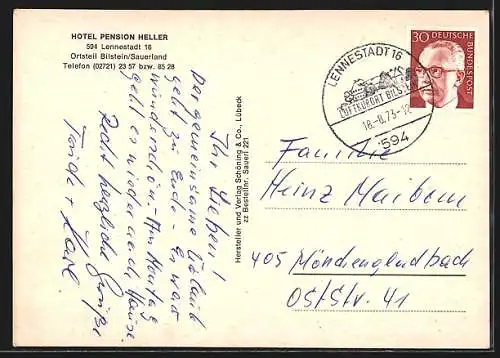 HOTEL PENSION HELLER
594 Lennestadt 16
Ortsteil Bilstein/Sauerland
Telefon (02721) 23 57 bzw. 85 28
Ihr Lieben!
Der gemeinsame Urlaub
geht zu Ende. Es war
wunderschön. Am Montag
geht es wieder nach Hause.
Recht herzliche Grüße
Karl
Hersteller und Verlag Schöning & Co., Lübeck
zu Bestellnr. Sauerl 221
30 DEUTSCHE BUNDESPOST
LENNESTADT 16
LUFTKURORT BILSTEIN
594
Familie
Heinz Maibom
405 Mönchengladbach
Oststr. 41